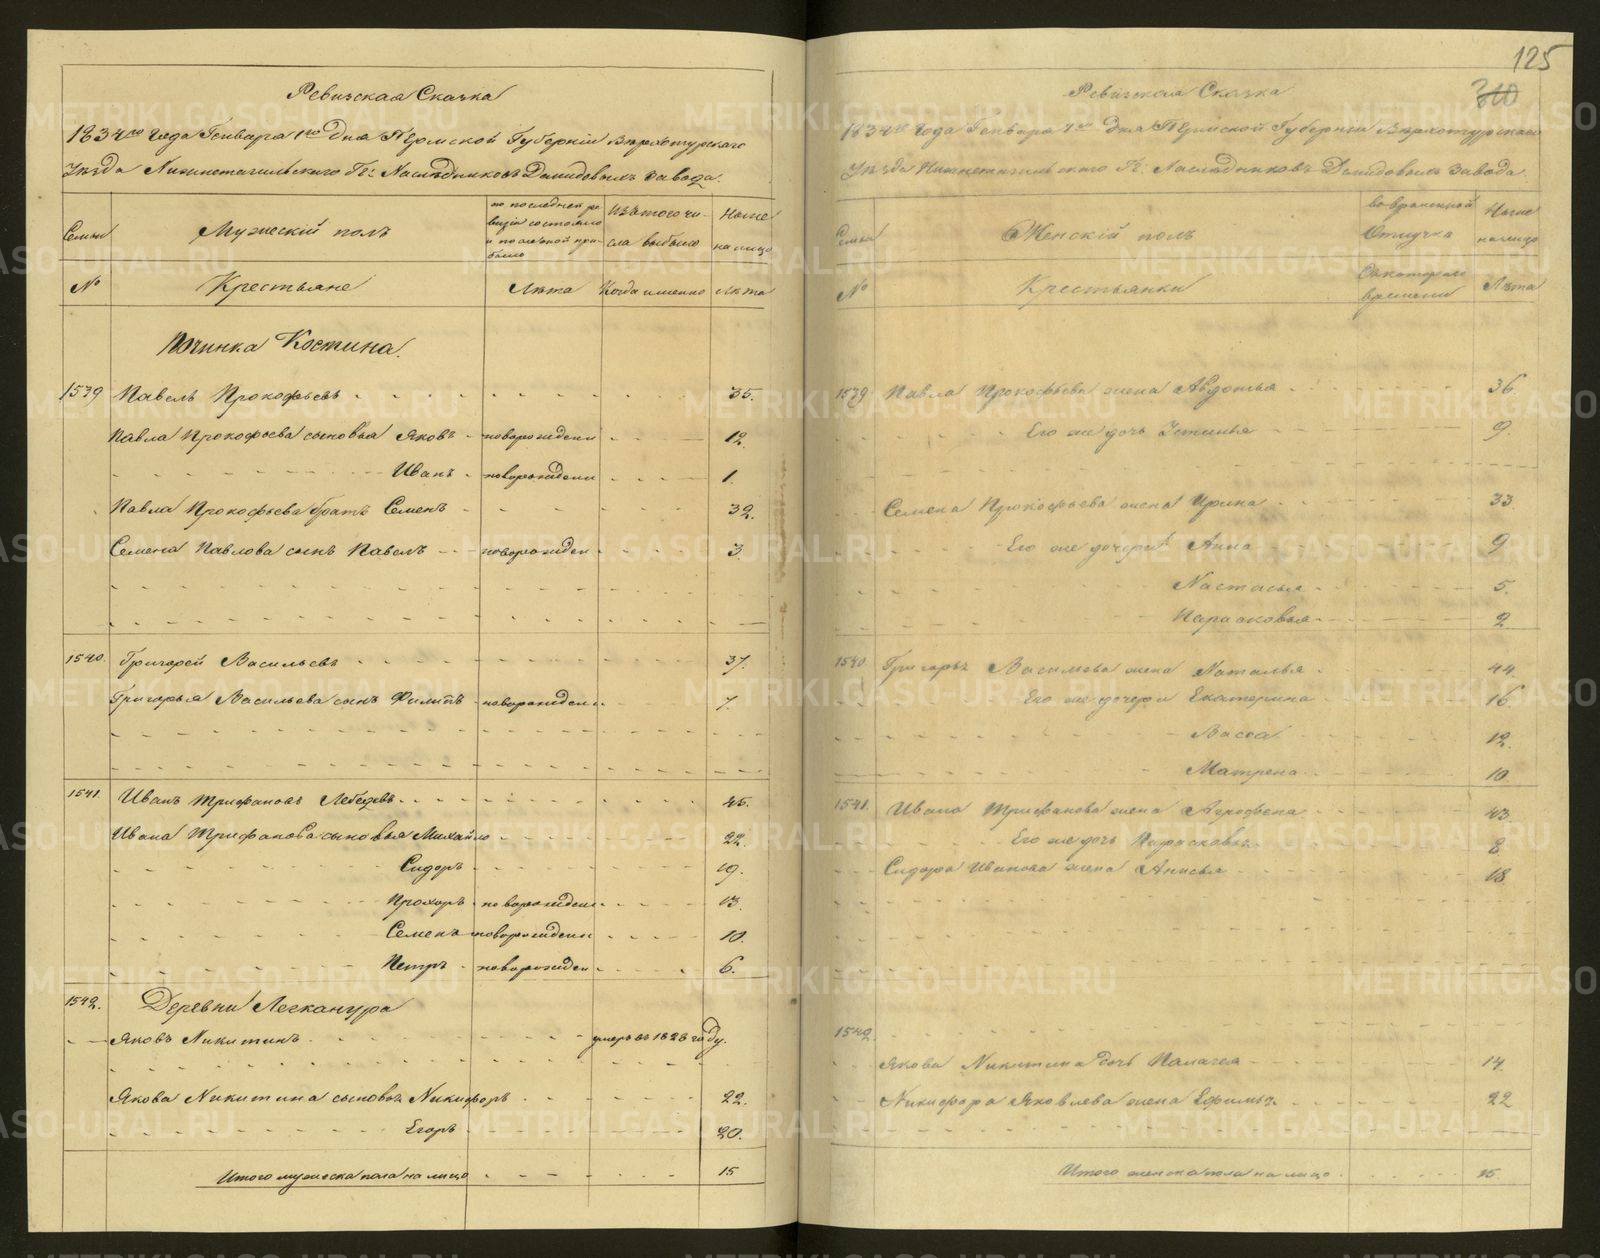 Ревизская Сказка
1834го Года Генваря 1го Дня Пермской Губерніи Верхотурскаго
Уѣзда Нижнетагильскаго Гг: Наслѣдниковъ Демидовыхъ завода.
Семьи
Мужескій полъ
по последней ревизіи состояло и после оной прибыло
Изъ того числа выбыло
Ныне на лицо
№
Крестьяне
Лѣта
Когда именно
Лѣта
Починка Костина.
1539 Павелъ Прокофьевъ 35.
Павла Прокофьева сыновья Яковъ новорожденн 12.
Иванъ новорожденн 1.
Павла Прокофьева братъ Семенъ 32.
Семена Павлова сынъ Павелъ новорожден 3.
1540. Григорей Васильевъ 37.
Григорья Васильева сынъ Филипъ новорожденн 7.
1541. Иванъ Трифановъ Лебедевъ 45.
Ивана Трифанова сыновья Михайло 22.
Сидоръ 19.
Прохоръ новорожденн 13.
Семенъ новорожденн 10.
Петръ новорожден 6.
1542. Деревни
Яковъ Никитинъ умеръ въ 1826 году.
Якова Никитина сыновья Никифоръ 22.
Егоръ 20.
Итого мужеска пола на лицо 15
125
310
Ревизская Сказка
1834го Года Генваря 1го Дня Пермской Губерніи Верхотурскаго
Уѣзда Нижнетагильскаго Гг. Наслѣдниковъ Демидовыхъ завода.
Семьи
Женскій полъ
во временной Отлучке
Ныне на лицо
№
Крестьянки
Съ котораго времени
Лѣта
1539 Павла Прокофьева жена Авдотья 36.
Его же дочь Устинья 9.
Семена Прокофьева жена Ирина 33
Его же дочери Анна 9
Настасья 5.
Парасковья 2
1540. Григорья Васильева жена Наталья 44.
Его же дочери Екатерина 16.
Васса 12.
Матрена 10
1541. Ивана Трифанова жена Агрофена 43
Его же дочь Парасковья 8
Сидора Иванова жена Анисья 18
1542.
Якова Никитина дочь Палагея 14.
Никифора Яковлева жена Ефимья 22
Итого женска пола на лицо 15.
METRIKI.GASO-URAL.RU